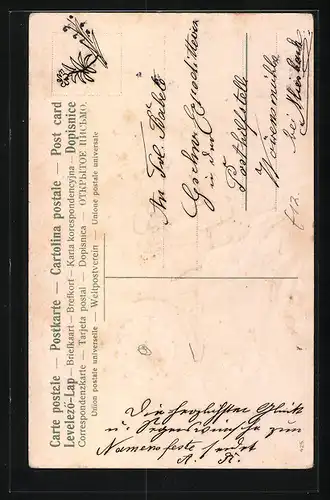 Carte postale — Postkarte — Cartolina postale — Post card
Levelező-Lap — Briefkaart — Brefkort — Karta korespondencyjna — Dopisnice
Correspondenzkarte — Tarjeta postal — Dopisnica — ОТКРЫТОЕ ПИСЬМО.
Union postale universelle — Weltpostverein — Unione postale universale
An Frl.
in der
Posthilfstelle
bei
Die herzlichsten Glück
u. Segenswünsche zum
Namensfeste sendet
A. R.